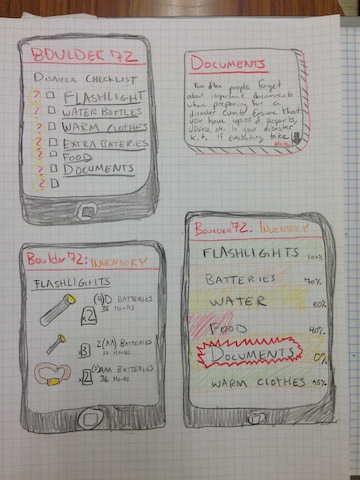 BOULDER 72
DISASTER CHECKLIST
? FLASHLIGHT
? WATER BOTTLES
? WARM CLOTHES
? EXTRA BATERIES
? FOOD
? DOCUMENTS
?
DOCUMENTS
Too often people forget
about important documents
when preparing for a
disaster event. Ensure that
you have copies of passports,
etc. in your disaster
kit. If everything
BOULDER 72: INVENTORY
FLASHLIGHTS
(4) D BATTERIES
x2 36 HOURS
2 BATTERIES
x3 10 HOURS
BATTERIES
x2 36 HOURS
BOULDER 72: INVENTORY
FLASHLIGHTS 100%
BATTERIES 70%
WATER 80%
FOOD 40%
DOCUMENTS 0%
WARM CLOTHES 95%